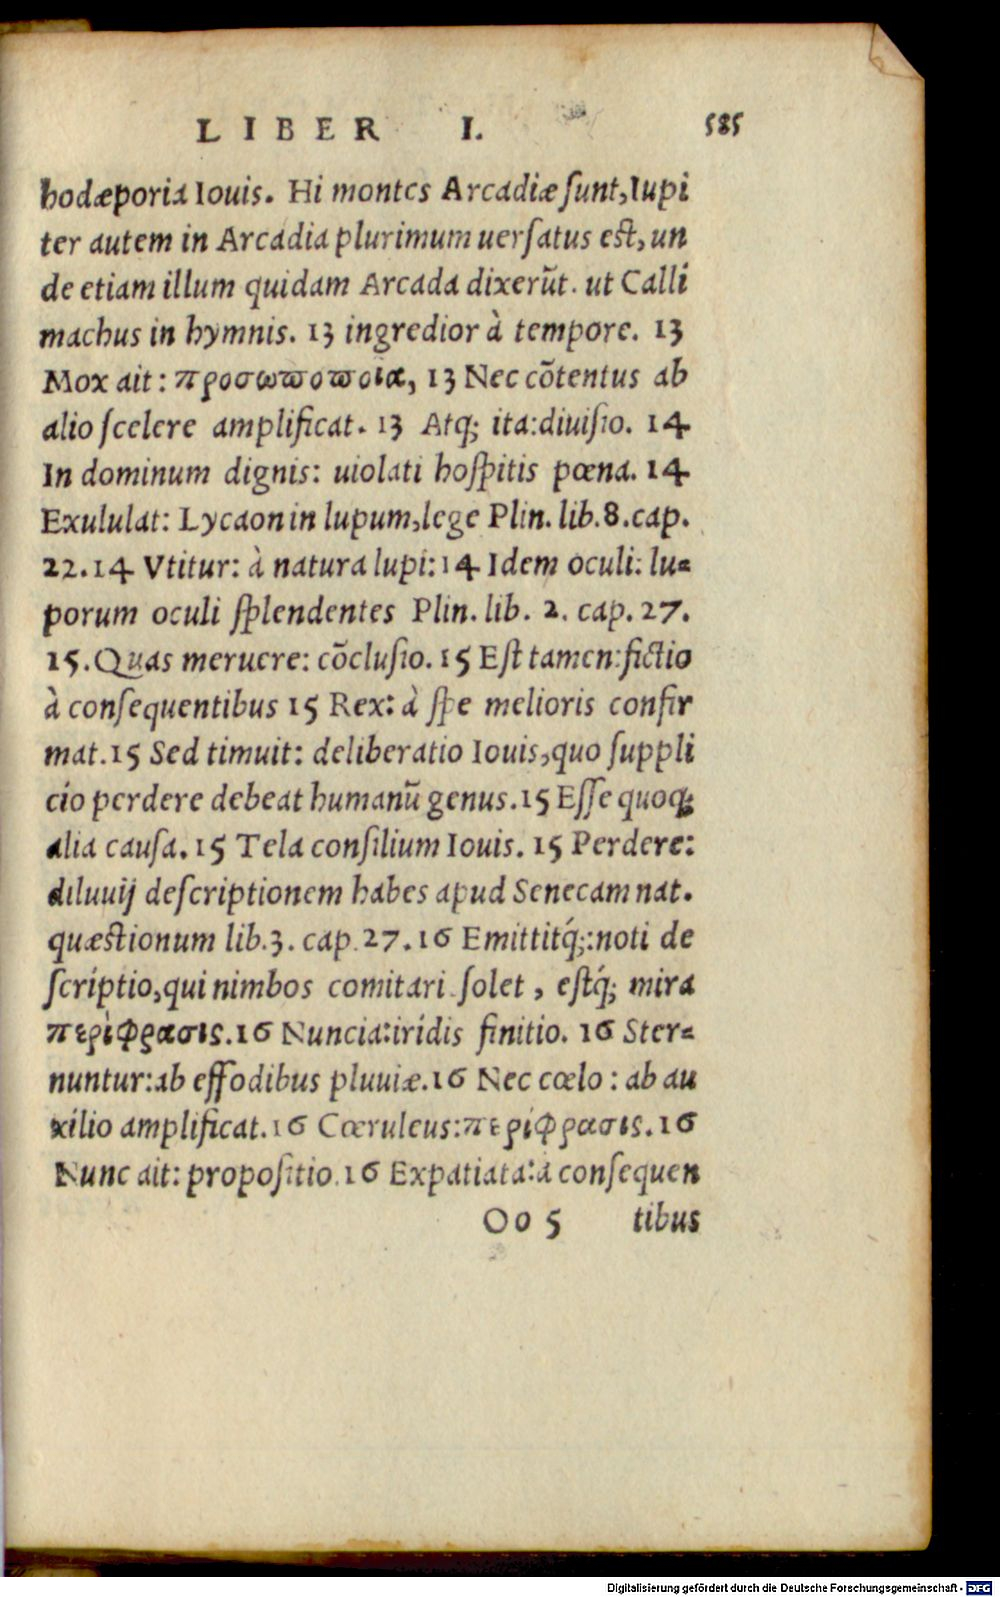 LIBER I. 585
hodæporia Iouis. Hi montes Arcadiæ ſunt, Iupi
ter autem in Arcadia plurimum uerſatus eſt, un
de etiam illum quidam Arcada dixerūt. ut Calli
machus in hymnis. 13 ingredior à tempore. 13
Mox ait: προσωϖοϖοιΐα, 13 Nec cōtentus ab
alio ſcelere amplificat. 13 Atq; ita: diuiſio. 14
In dominum dignis: uiolati hoſpitis pœna. 14
Exululat: Lycaon in lupum, lege Plin. lib. 8. cap.
22. 14 Vtitur: à natura lupi: 14 Idem oculi: lu-
porum oculi ſplendentes Plin. lib. 2. cap. 27.
15. Quas meruere: cōcluſio. 15 Eſt tamen: fictio
à conſequentibus 15 Rex: à ſpe melioris confir
mat. 15 Sed timuit: deliberatio Iouis, quo ſuppli
cio perdere debeat humanū genus. 15 Eſſe quoq;
alia cauſa. 15 Tela conſilium Iouis. 15 Perdere:
diluuij deſcriptionem habes apud Senecam nat.
quæſtionum lib. 3. cap. 27. 16 Emittitq́;: noti de
ſcriptio, qui nimbos comitari ſolet, eſtq́; mira
περίφρασις. 16 Nuncia: iridis finitio. 16 Ster-
nuntur: ab effodibus pluuiæ. 16 Nec cœlo: ab au
xilio amplificat. 16 Cœruleus: περίφρασις. 16
Nunc ait: propoſitio. 16 Expatiata: à conſequen
Oo 5 tibus
Digitalisierung gefördert durch die Deutsche Forschungsgemeinschaft - DFG